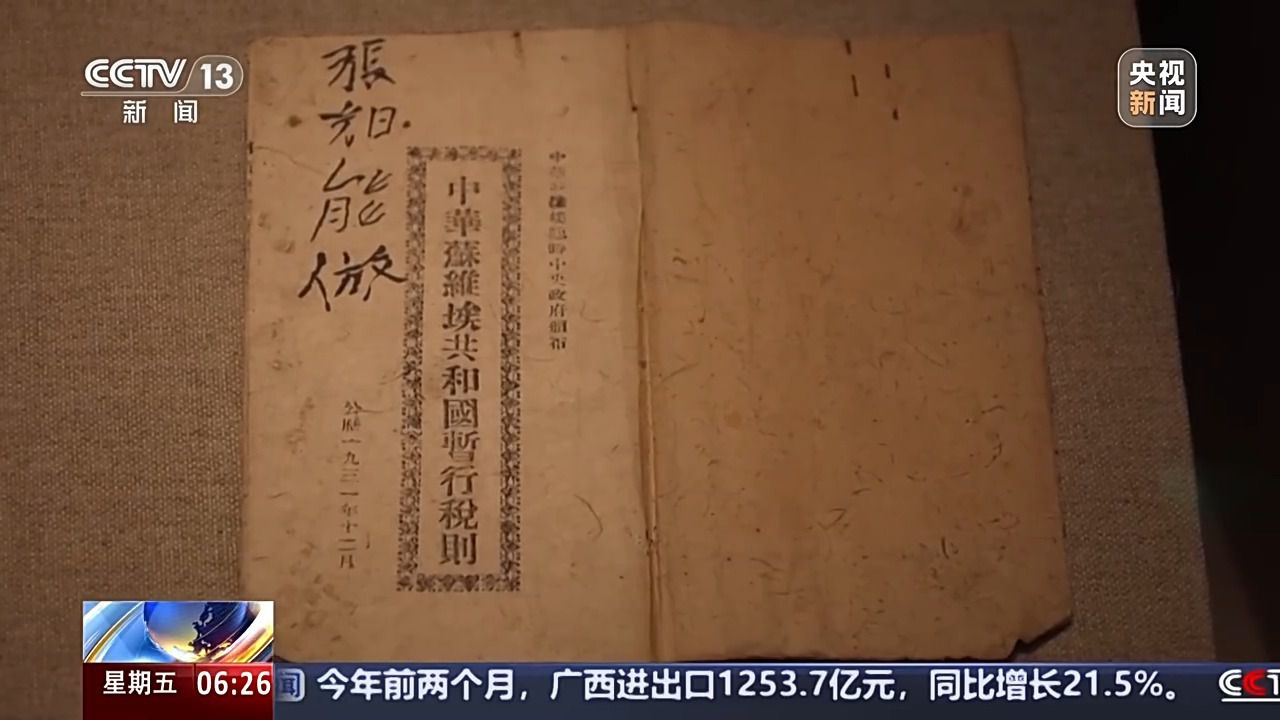 CCTV 13
新闻
央视
新闻
張
能
做
中華蘇維埃共和國臨時中央政府頒布
中華蘇維埃共和國暫行稅則
公曆一九三一年十二月
星期五 06:26
闻 今年前两个月，广西进出口1253.7亿元，同比增长21.5%。